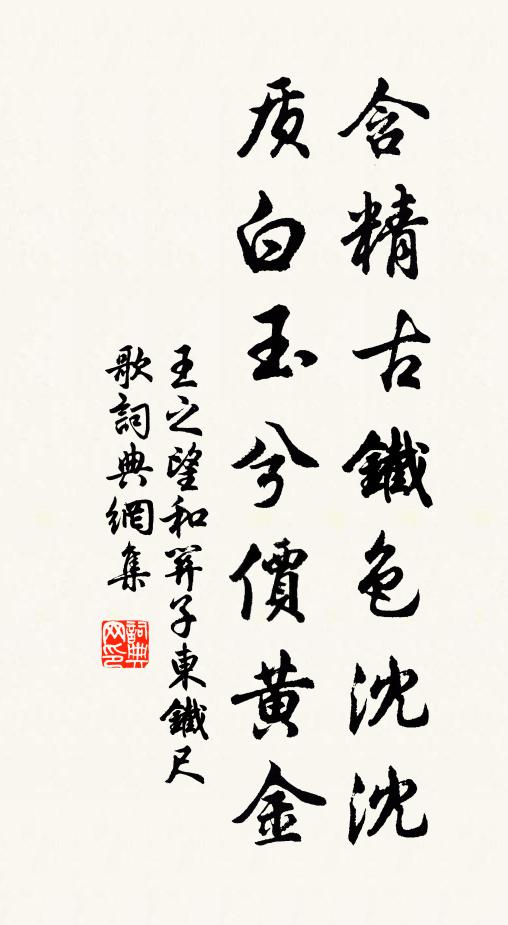 含精古鐵色沈沈
质白玉兮價黄金
王之望和關子東鐵尺
歌詞典網集
詞典网印